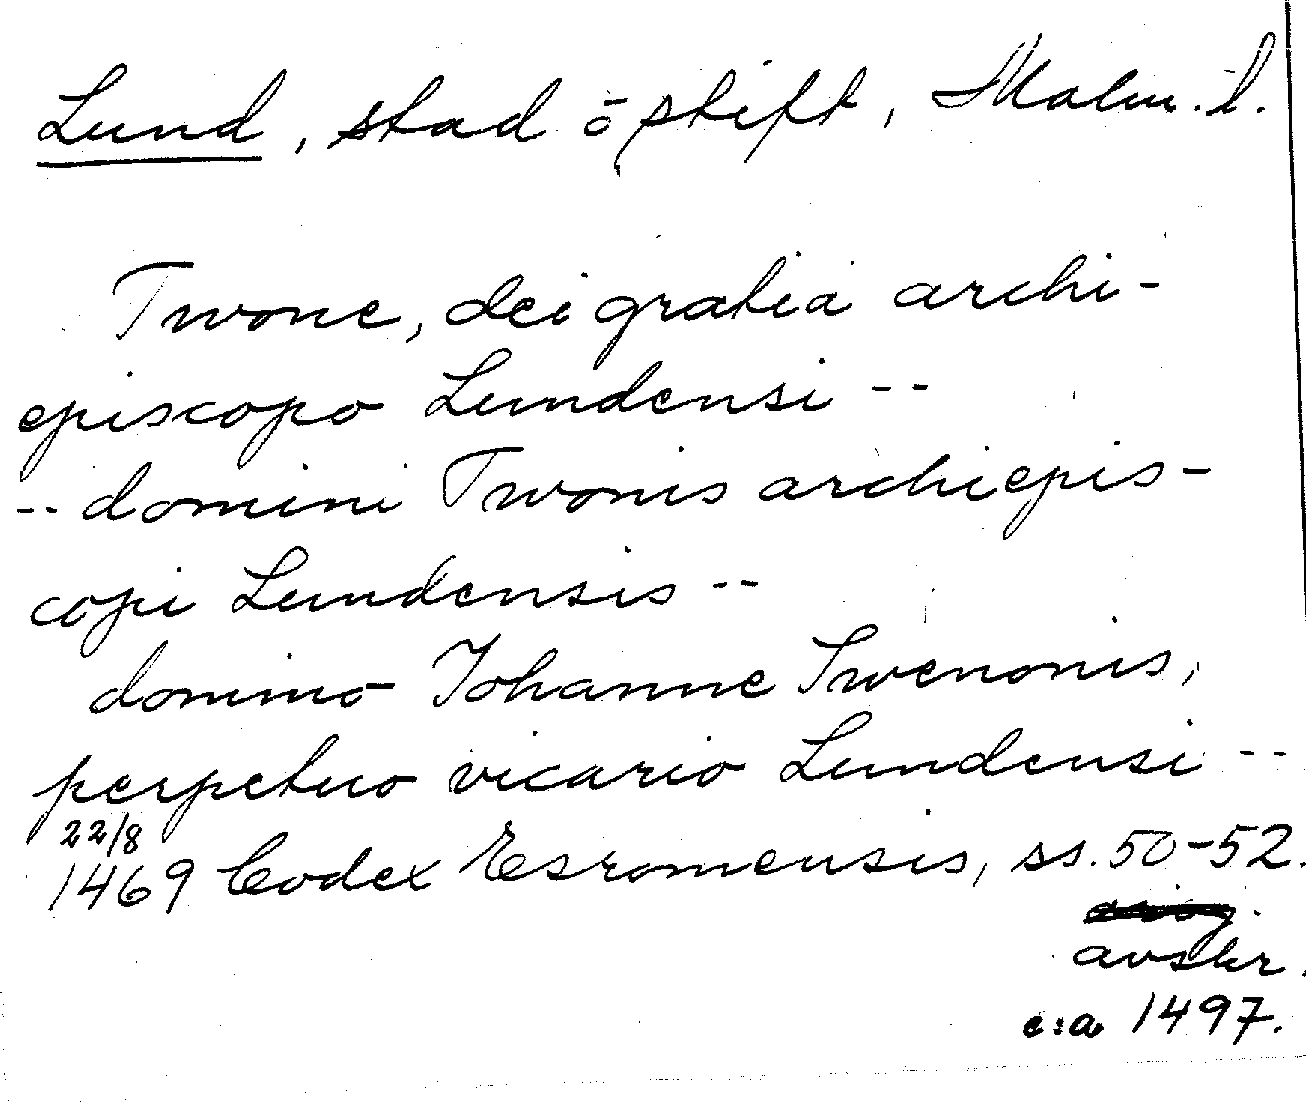 Lund, stad o stift, Malm. l.
Twone, dei gratia archi-
episcopo Lundensi --
-- domini Twonis archiepis-
copi Lundensis --
domino Johanne Swenonis,
perpetuo vicario Lundensi --
22/8
1469 Codex Esromensis, ss. 50-52.
avskr.
c:a 1497.